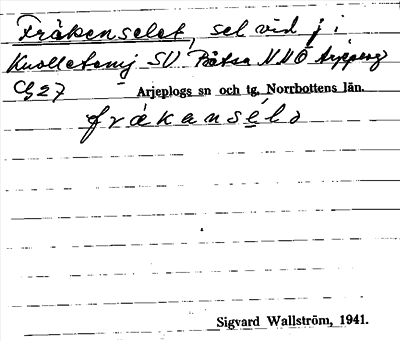 Fräkenselet, sel vid j. i
Knolletomj SV Båtsa NNÖ Arjeplog
Cg 27 Arjeplogs sn och tg, Norrbottens län.
frákansélə
Sigvard Wallström, 1941.